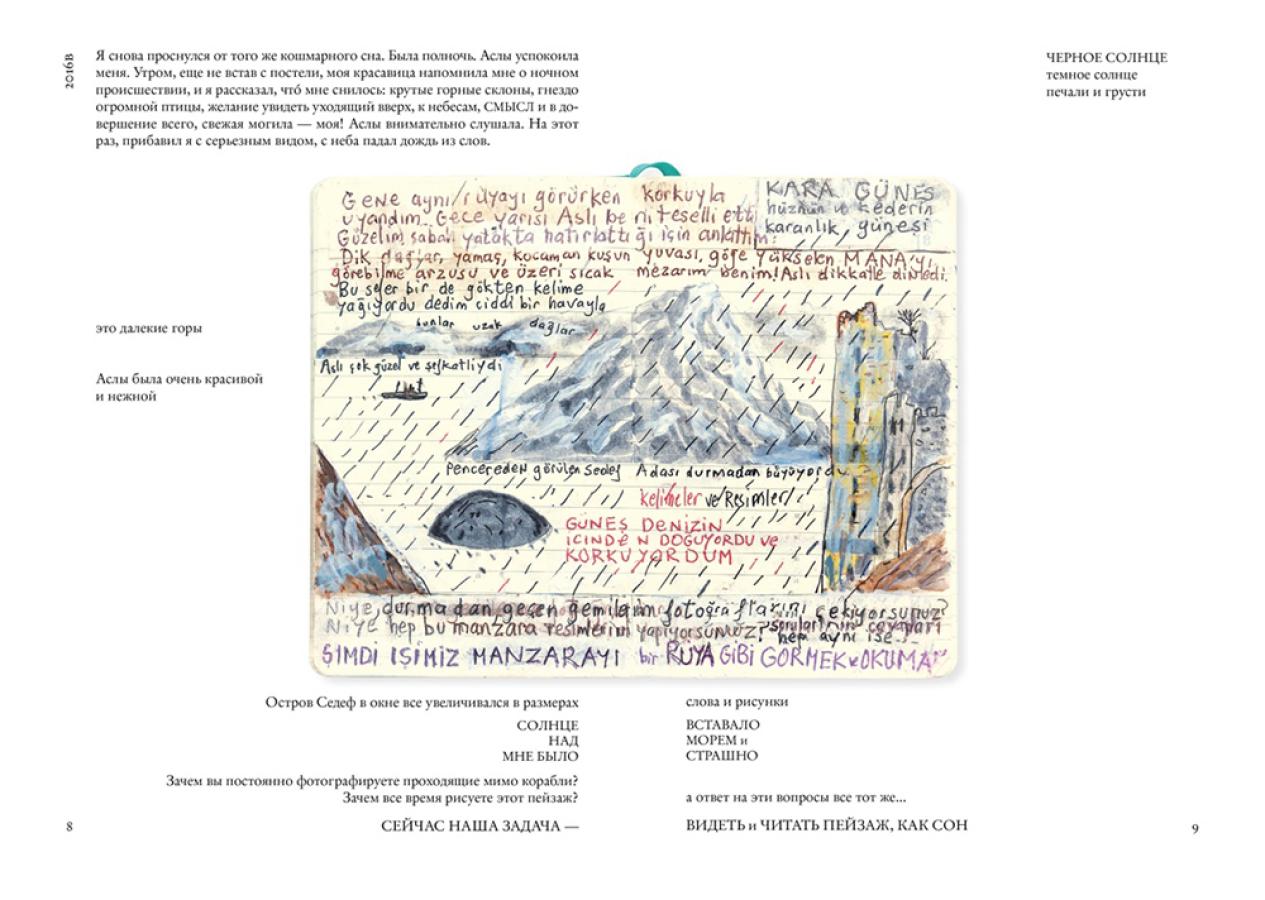 2016В
Я снова проснулся от того же кошмарного сна. Была полночь. Аслы успокоила
меня. Утром, еще не встав с постели, моя красавица напомнила мне о ночном
происшествии, и я рассказал, что́ мне снилось: крутые горные склоны, гнездо
огромной птицы, желание увидеть уходящий вверх, к небесам, СМЫСЛ и в до-
вершение всего, свежая могила — моя! Аслы внимательно слушала. На этот
раз, прибавил я с серьезным видом, с неба падал дождь из слов.
ЧЕРНОЕ СОЛНЦЕ
темное солнце
печали и грусти
Gene aynı rüyayı görürken korkuyla
uyandım. Gece yarısı Aslı beni teselli etti
Güzelim sabah yatakta hatırlattığı için anlattım:
KARA GÜNEŞ
hüznün ve kederin
karanlık güneşi
Dik dağlar, yamaç, kocaman kuşun yuvası, göğe yükselen MANA'yı
görebilme arzusu ve üzeri sıcak mezarım benim! Aslı dikkatle dinledi.
Bu sefer bir de gökten kelime
yağıyordu dedim ciddi bir havayla
bunlar uzak dağlar
Aslı çok güzel ve şefkatliydi
это далекие горы
Аслы была очень красивой
и нежной
Pencereden görülen Sedef Adası durmadan büyüyordu
kelimeler ve Resimler
GÜNEŞ DENİZİN
İÇİNDEN DOĞUYORDU ve
KORKUYORDUM
Niye durmadan geçen gemilerin fotoğraflarını çekiyorsunuz?
Niye hep bu manzara resimlerini yapıyorsunuz? soruların cevapları
hep aynı ise...
ŞİMDİ İŞİMİZ MANZARAYI bir RÜYA GİBİ GÖRMEK ve OKUMAK
Остров Седеф в окне все увеличивался в размерах
слова и рисунки
СОЛНЦЕ
НАД
МНЕ БЫЛО
ВСТАВАЛО
МОРЕМ и
СТРАШНО
Зачем вы постоянно фотографируете проходящие мимо корабли?
Зачем все время рисуете этот пейзаж?
а ответ на эти вопросы все тот же...
СЕЙЧАС НАША ЗАДАЧА —
ВИДЕТЬ и ЧИТАТЬ ПЕЙЗАЖ, КАК СОН
8
9